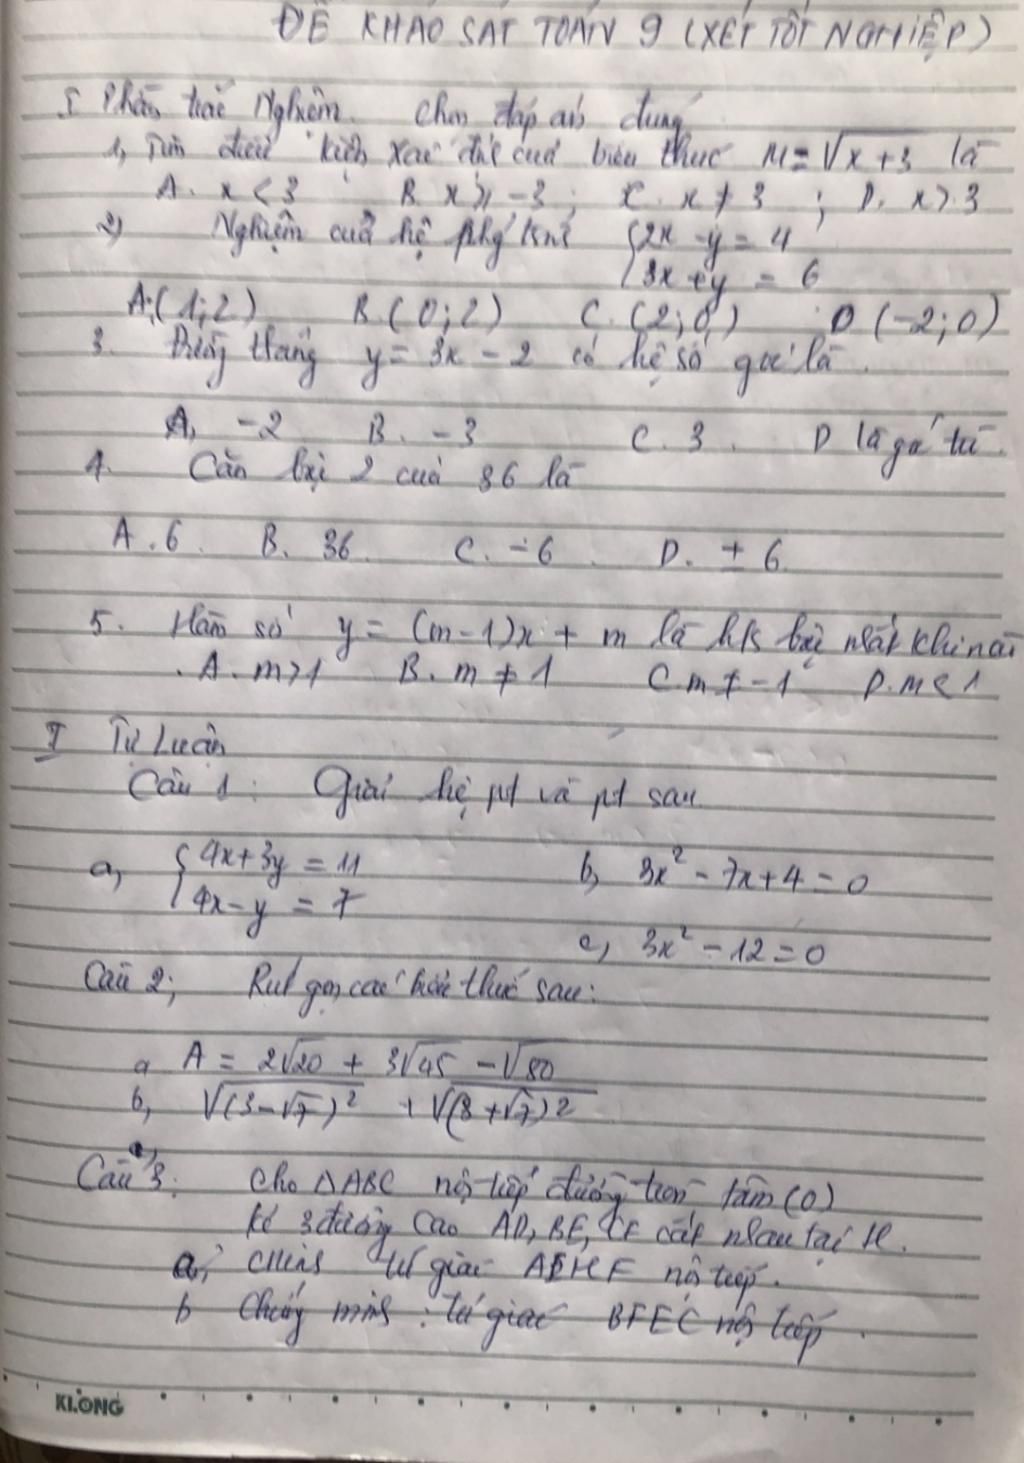 ĐỀ KHẢO SÁT TOÁN 9 (XÉT TỐT NGHIỆP)
I Phần trắc Nghiệm. Chọn đáp án đúng
1, Tìm điều kiện xác định của biểu thức M = √(x+3) là
A. x < 3 B. x ≥ -3 ; C. x ≠ 3 ; D. x > 3
2) Nghiệm của hệ {2x - y = 4
{3x + y = 6
A. (1; 2) B. (0; 2) C. (2; 0) D (-2; 0)
3. Đường thẳng y = 3x - 2 có hệ số góc là
A, -2 B. -3 C. 3. D là
4. Căn bậc 2 của 36 là
A. 6. B. 36 C. -6 D. ± 6
5. Hàm số y = (m-1)x + m là h/s bậc nhất khi nào
A. m > 1 B. m ≠ 1 C. m ≠ -1 D. m < 1
II Tự Luận
Câu 1: Giải hệ pt và pt sau
a, {4x + 3y = 11 b, 3x² - 7x + 4 = 0
{4x - y = 7
c, 3x² - 12 = 0
Câu 2; Rút gọn các biểu thức sau:
a A = 2√20 + 3√45 - √80
b, √(3-√7)² + √(3+√7)²
Câu 3: Cho △ABC nội tiếp đường tròn tâm (O)
kẻ 3 đường cao AD, BE, CF cắt nhau tại H.
a, CMinh tứ giác AEHF nội tiếp.
b Chứng minh: tứ giác BFEC nội tiếp.
KLONG